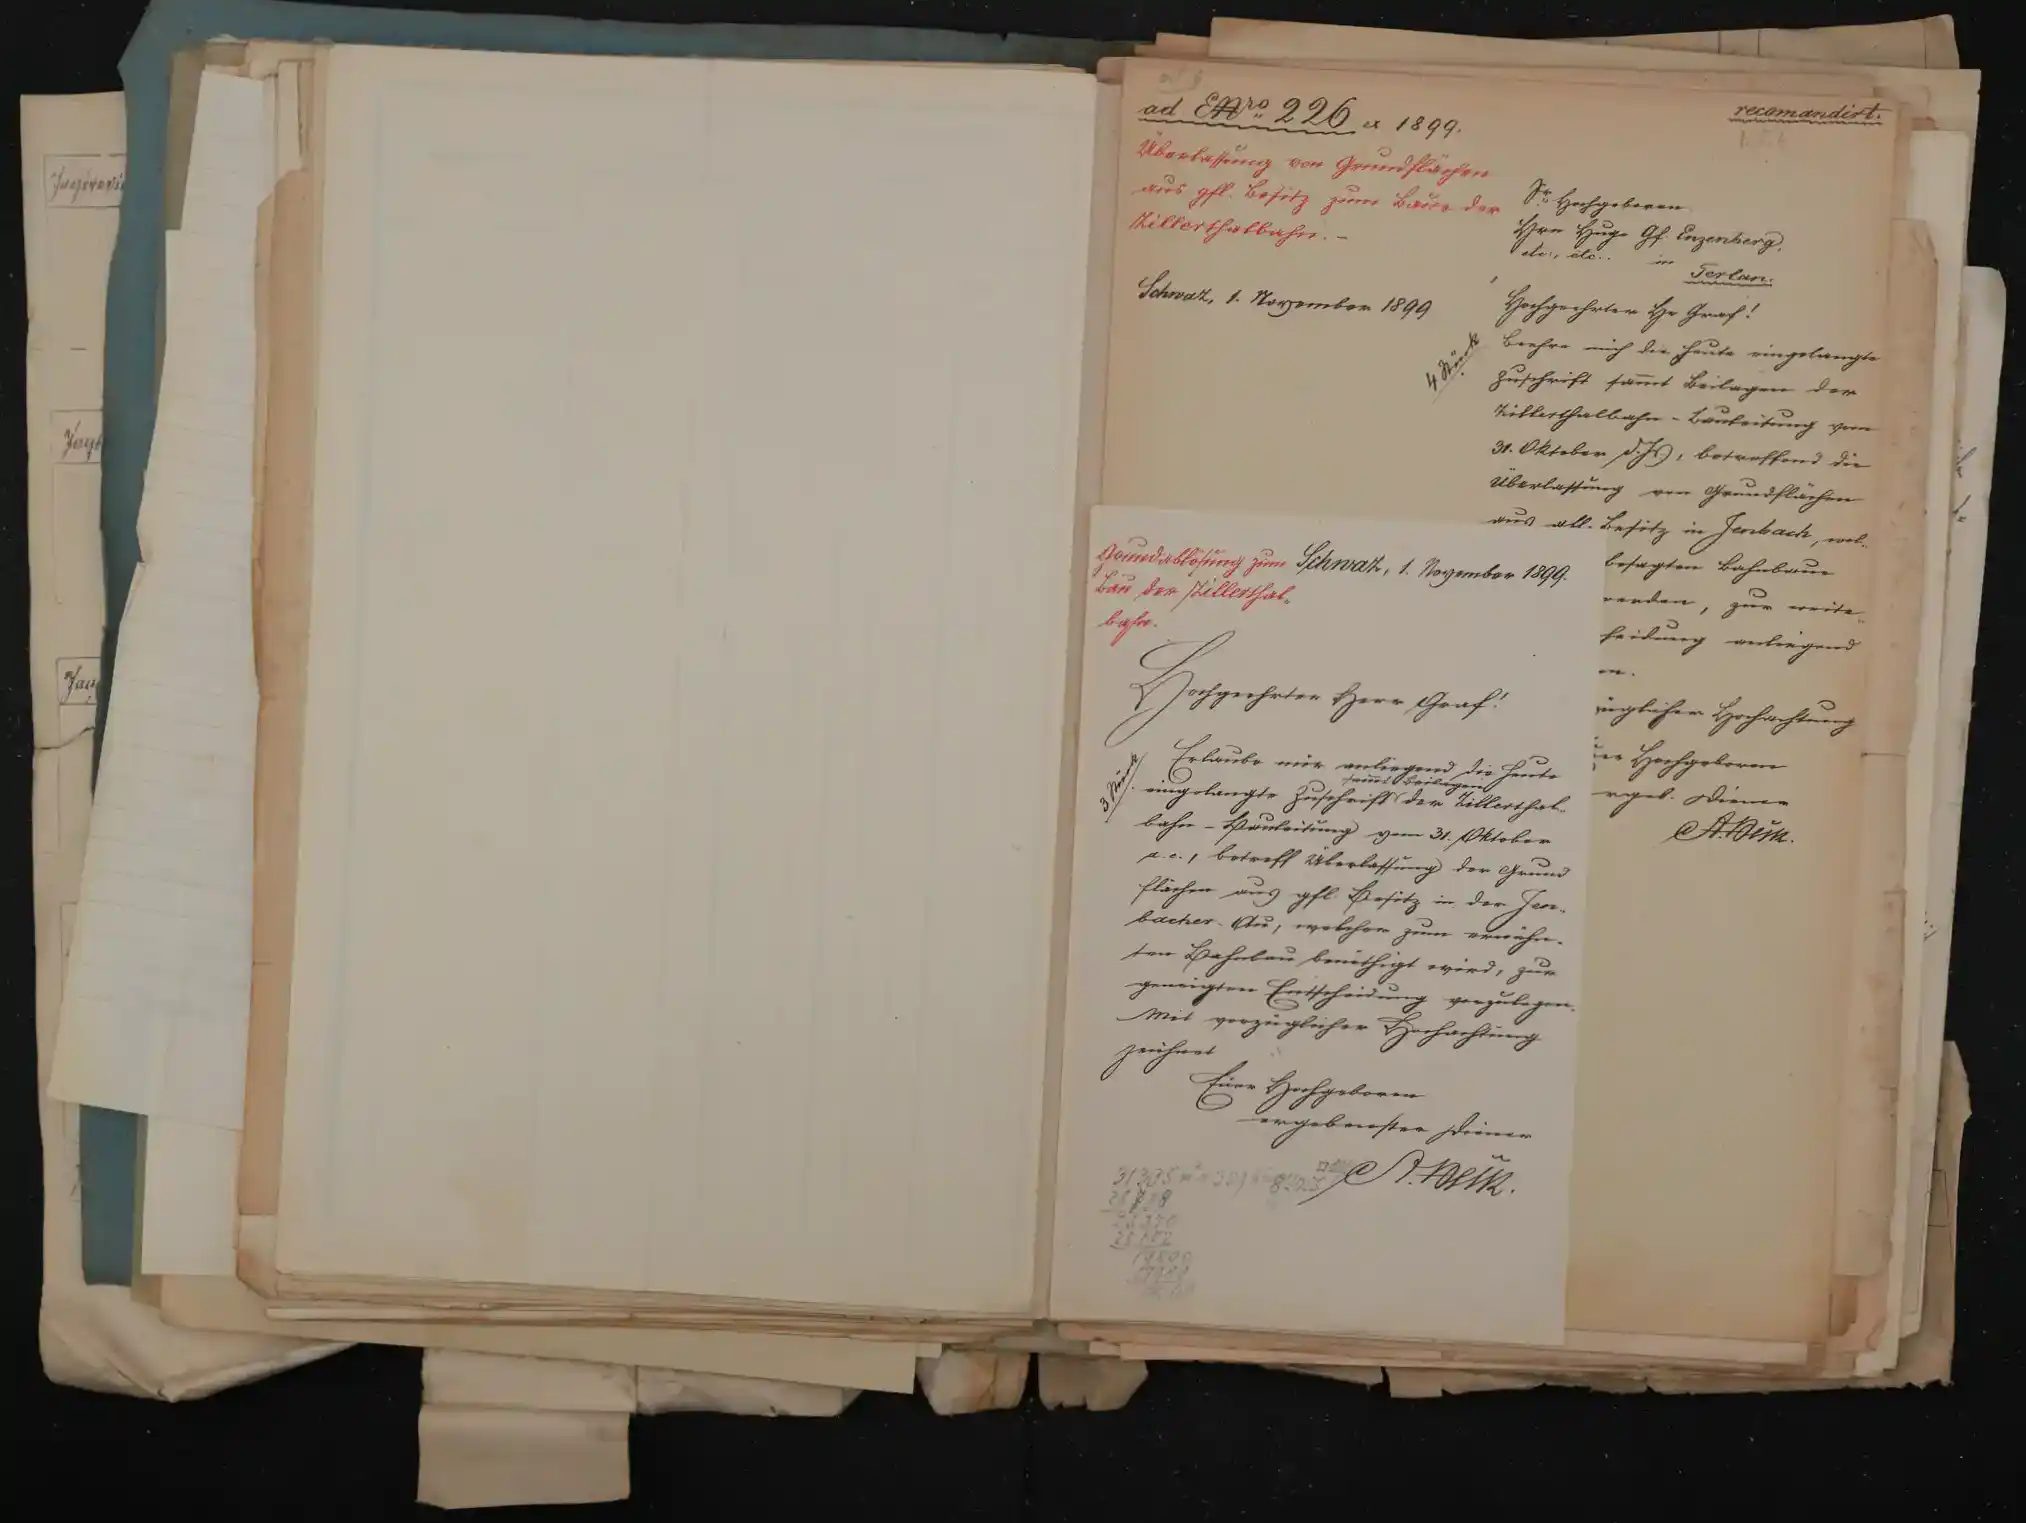 ad ENro 226 ex 1899.
recomandirt.
Überlassung von Grundflächen
aus gfl. Besitz zum Baue der
Zillerthalbahn. –
Schwaz, 1. November 1899
Sr. Hochgeboren
Hrn Hugo Gf. Enzenberg,
etc., etc.. in
Terlan.
Hochgeehrter Hr Graf!
4 Stück
Beehre mich die heute eingelangte
Zuschrift sammt Beilagen der
Zillerthalbahn-Bauleitung vom
31. Oktober d. Js., betreffend die
Überlassung von Grundflächen
aus all. Besitz in Jenbach, wel-
besagten Bahnbaue
werden, zur weite-
heidung anliegend
en.
üglicher Hochachtung
uer Hochgeboren
rgeb. Diener
A. Neuk.
Grundablösung zum
Bau der Zillerthal-
bahn.
Schwaz, 1. November 1899.
Hochgeehrter Herr Graf!
3 Stück
Erlaube mir anliegend die heute
sammt Beilagen
eingelangte Zuschrift der Zillerthal-
bahn-Bauleitung vom 31. Oktober
a. c., betreff Überlassung der Grund
flächen aus gfl. Besitz in der Jen-
bacher-Au, welcher zum erwähn-
ten Bahnbau benöthigt wird, zur
geneigten Entscheidung vorzulegen.
Mit vorzüglicher Hochachtung
zeichnet
Euer Hochgeboren
ergebenster Diener
A. Neuk.